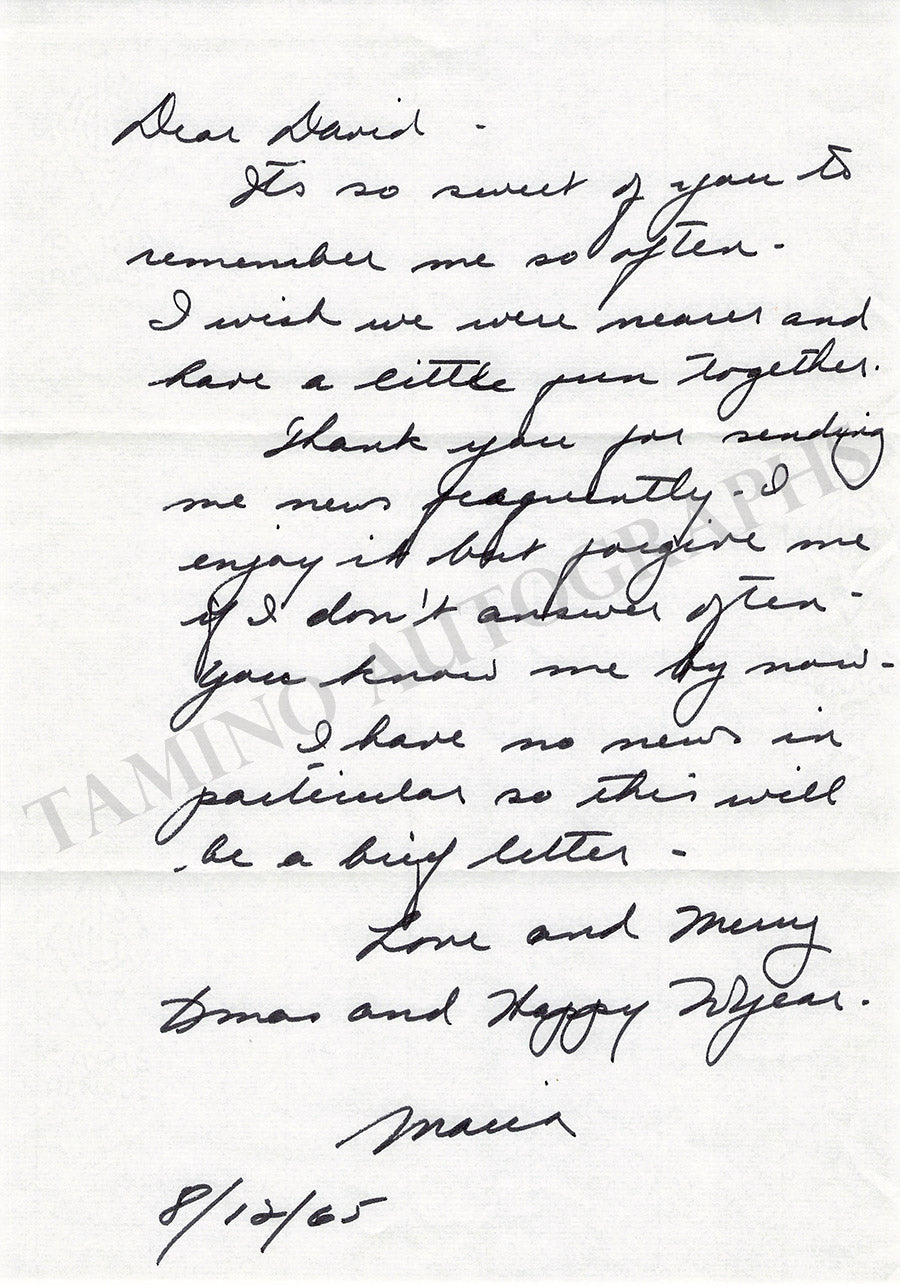 Dear David -
Its so sweet of you to
remember me so often -
I wish we were nearer and
have a little fun together.
Thank you for sending
me news freaquently - I
enjoy it but forgive me
if I don't answer often -
You know me by now -
I have no news in
particular so this will
be a brief letter -
Love and Merry
Xmas and Happy N Year.
Maria
8/12/65
TAMINO AUTOGRAPHS